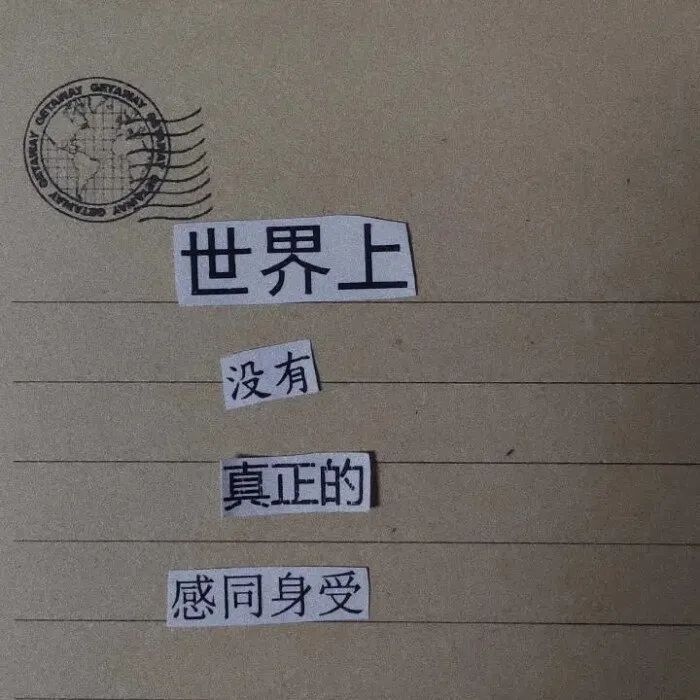 GETAWAY GETAWAY GETAWAY GETAWAY GETAWAY
世界上
没有
真正的
感同身受